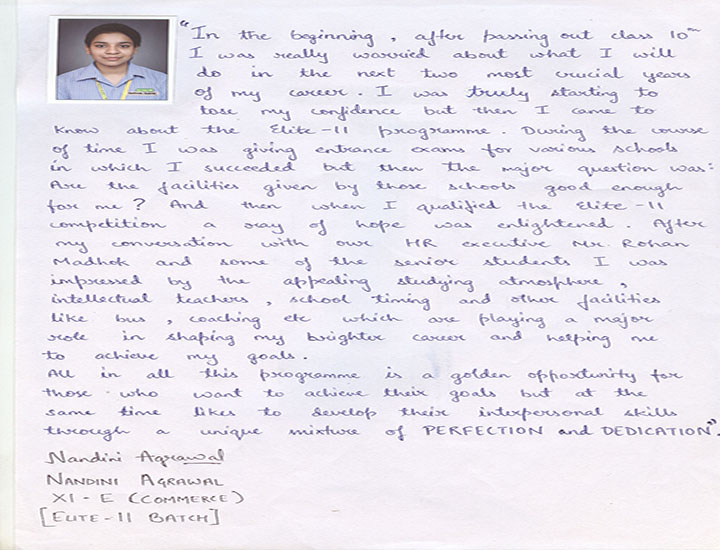 "In the beginning, after passing out class 10th
I was really worried about what I will
do in the next two most crucial years
of my career. I was truly starting to
lose my confidence but then I came to
know about the Elite-11 programme. During the course
of time I was giving entrance exams for various schools
in which I succeeded but then the major question was:
Are the facilities given by those schools good enough
for me? And then when I qualified the Elite-11
competition a ray of hope was enlightened. After
my conversation with our HR executive Mr. Rohan
Madhok and some of the senior students I was
impressed by the appealing studying atmosphere,
intellectual teachers, school timing and other facilities
like bus, coaching etc which are playing a major
role in shaping my brighter career and helping me
to achieve my goals.
All in all this programme is a golden opportunity for
those who want to achieve their goals but at the
same time likes to develop their interpersonal skills
through a unique mixture of PERFECTION and DEDICATION".
Nandini Agrawal
NANDINI AGRAWAL
XI-E (COMMERCE)
[ELITE-11 BATCH]